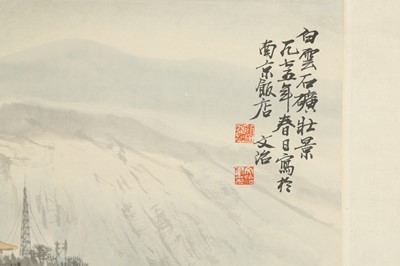 白雲石礦壯景
一九七五年春日寫於
南京飯店
文治